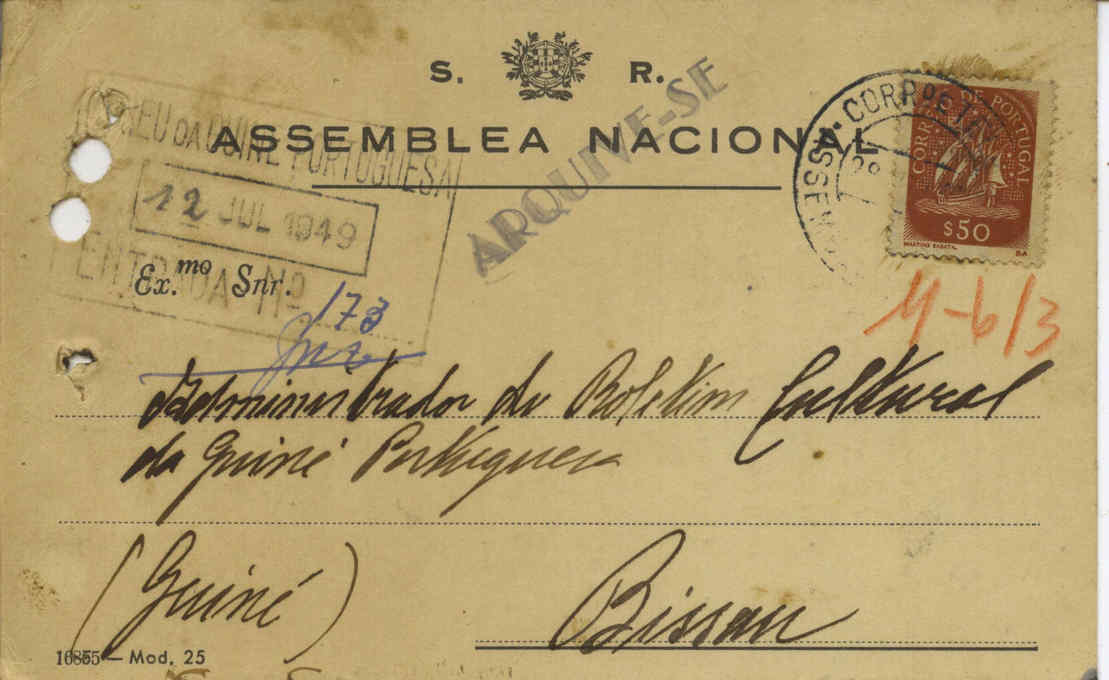 S. R.
ASSEMBLEA NACIONAL
ARQUIVE-SE
DA GUINÉ PORTUGUESA
12 JUL 1949
ENTRADA Nº
173
Ex.mo Snr.
CORREIO DE PORTUGAL
$50
MARTINS BARATA
11-6/3
Administrador do Boletim Cultural
da Guiné Portuguesa
(Guiné) Bissau
16855 — Mod. 25